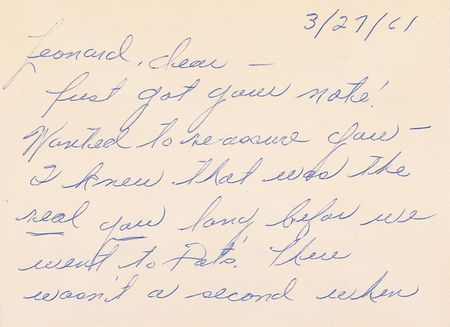 3/27/61
Leonard, dear –
Just got your note!
Wanted to re-assure you –
I knew that was the
real you long befor we
went to Pat's. There
wasn't a second when